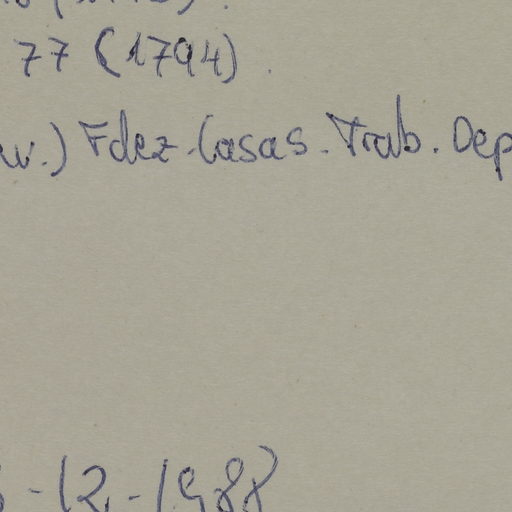 77 (1794).
Fdez-Casas. Trab. Dep
-12-1988